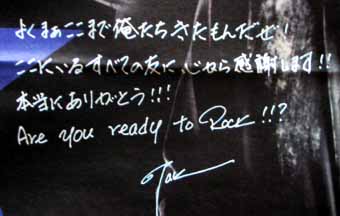 よくまぁここまで俺たちきたもんだぜ!
ここにいるすべての友に、心から感謝します!!
本当にありがとう!!!
Are you ready to Rock!!?
Tak